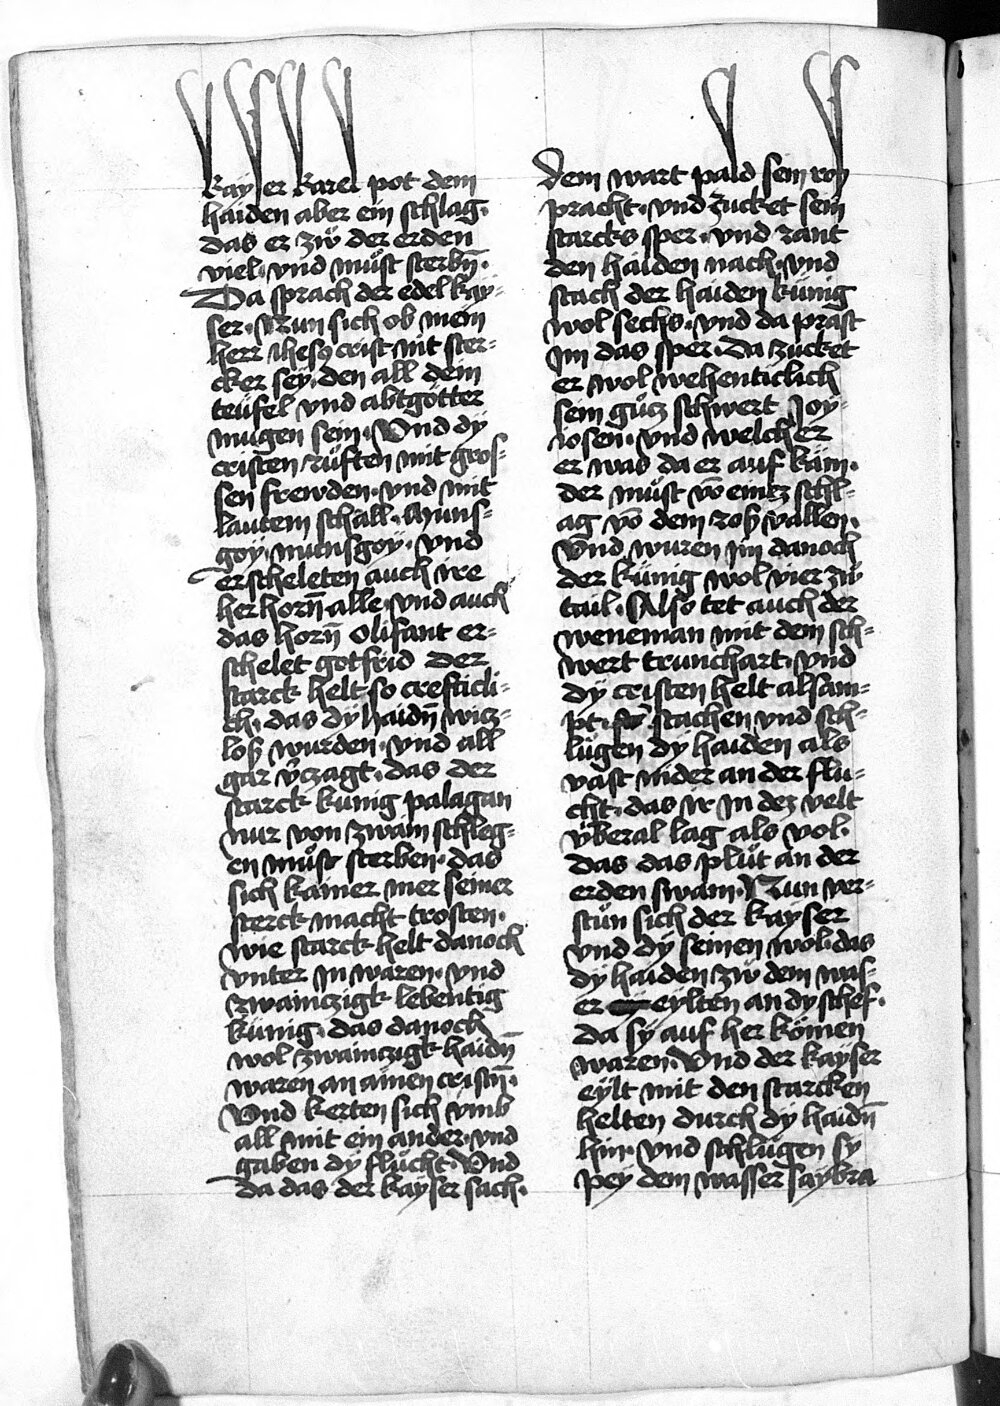 kayser karel pot dem
haiden aber ein schlag.
das er zů der erden
viel. vnd můst sterbn̄.
Da sprach der edel kay-
ser. Nun sich ob mein
herr ihesꝯ crist nit ster-
cker seÿ. den all dein
teüfel vnd abtgötter
mugen sein. Vnd dÿ
cristen růften mit gros-
sen frewden. vnd mit
lautem schall. Muns-
goÿ. munsgoÿ. vnd
erscheleten auch ire
her horn̄ alle. vnd auch
das horn̄ Olifant er-
schelet gotfrid der
starck helt so crefticli-
ch. das dÿ haidn̄ wicz-
loß wurden. vnd all
gar v̄czagt. das der
starck künig palagan
nur von zwain schleg-
en můst sterben. das
sich kainer mer seiner
sterck macht trosten.
wie starck helt danoch
vnter in waren. vnd
zwainczigk lebentig
künig. das danoch
wol zwainczigk haidn̄
waren an ainen cristn̄.
Vnd kerten sich vmb
all mit ein ander. vnd
gaben dÿ flůcht. Vnd
da das der kayser sach.
dem wart pald sein roß
pracht. vnd zucket sein
starcks sper. vnd rant
den haiden nach. vnd
stach der haiden künig
wol sechs. vnd da prast
im das sper. Da zucket
er wol wehenticlich
sein gůcz schwert Joy-
iosen. vnd welcher
er was da er auf kam.
der můst vō eincz schl-
ag vō dem roß vallen.
Vnd wuren im danoch
der künig wol vier zů
tail. Also tet auch der
weneman mit dem sch-
wert trunchart. vnd
dÿ cristen helt alsam-
pt. stachen vnd sch-
lügen dÿ haiden als
vast nider an der flu-
cht. das ir in dez velt
v̈beral lag als vol.
das das plůt an der
erden swam. Nun ver-
stůn sich der kayser
vnd dÿ seinen wol. das
dÿ haiden zů dem was-
er eÿlten an dy schef.
da sÿ auf her kömen
waren. Vnd der kayser
eÿlt mit den starcken
helten durch dÿ haidn̄
hin. vnd schlůgen sy
peÿ dem wasser saybra